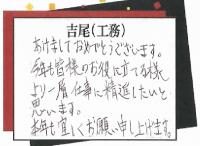 吉尾(工務)
あけましておめでとうございます。
今年も皆様のお役に立てる様、
より一層仕事に精進したいと
思います。
本年も宜しくお願い申し上げます。